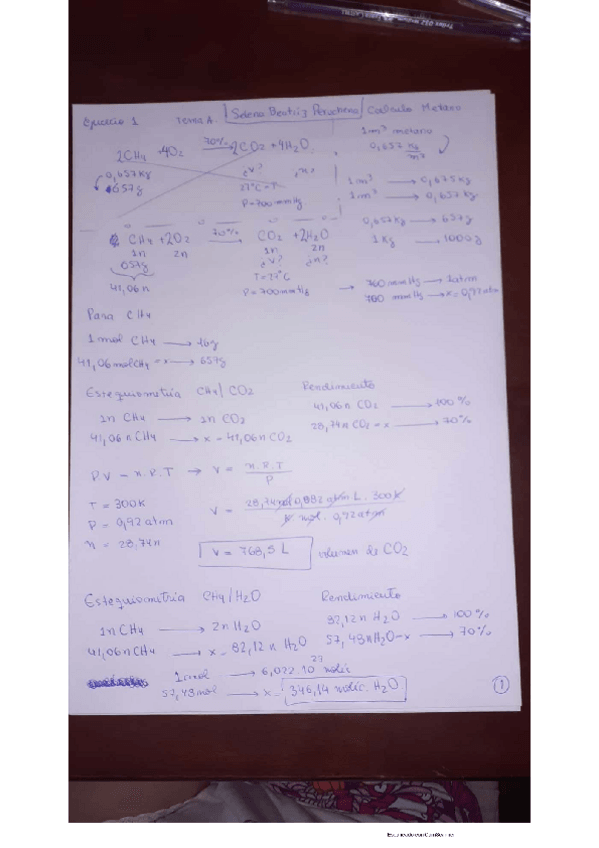 Ejercicio 1 Tema A Selena Beatriz Calculo Metano
2CH4 + 4O2 70% 2CO2 + 4H2O
0,657kg
657g
¿V? ¿n?
27°C = T
P = 700 mmHg
1m³ metano
0,657 kg/m³
1m³ → 0,675kg
1m³ → 0,657kg
0,657kg → 657g
1kg → 1000g
CH4 + 2O2 70% CO2 + 2H2O
1n 2n 1n 2n
657g ¿V? ¿n?
41,06n T = 27°C
P = 700 mmHg → 760 mmHg → 1atm
700 mmHg → x = 0,92 atm
Para CH4
1 mol CH4 → 16g
41,06 mol CH4 = x → 657g
Estequiometría CH4/CO2
1n CH4 → 1n CO2
41,06 n CH4 → x = 41,06n CO2
Rendimiento
41,06 n CO2 → 100%
28,74n CO2 = x → 70%
P.V = n.R.T → V = n.R.T / P
T = 300K
P = 0,92 atm
n = 28,74n
V = 28,74mol 0,082 atm L . 300K / K mol . 0,92 atm
V = 768,5 L volumen de CO2
Estequiometría CH4/H2O
1n CH4 → 2n H2O
41,06n CH4 → x = 82,12 n H2O
Rendimiento
82,12n H2O → 100%
57,48n H2O = x → 70%
1mol → 6,022.10²³ moléc
57,48mol → x = 346,14 moléc. H2O
1
Escaneado con CamScanner